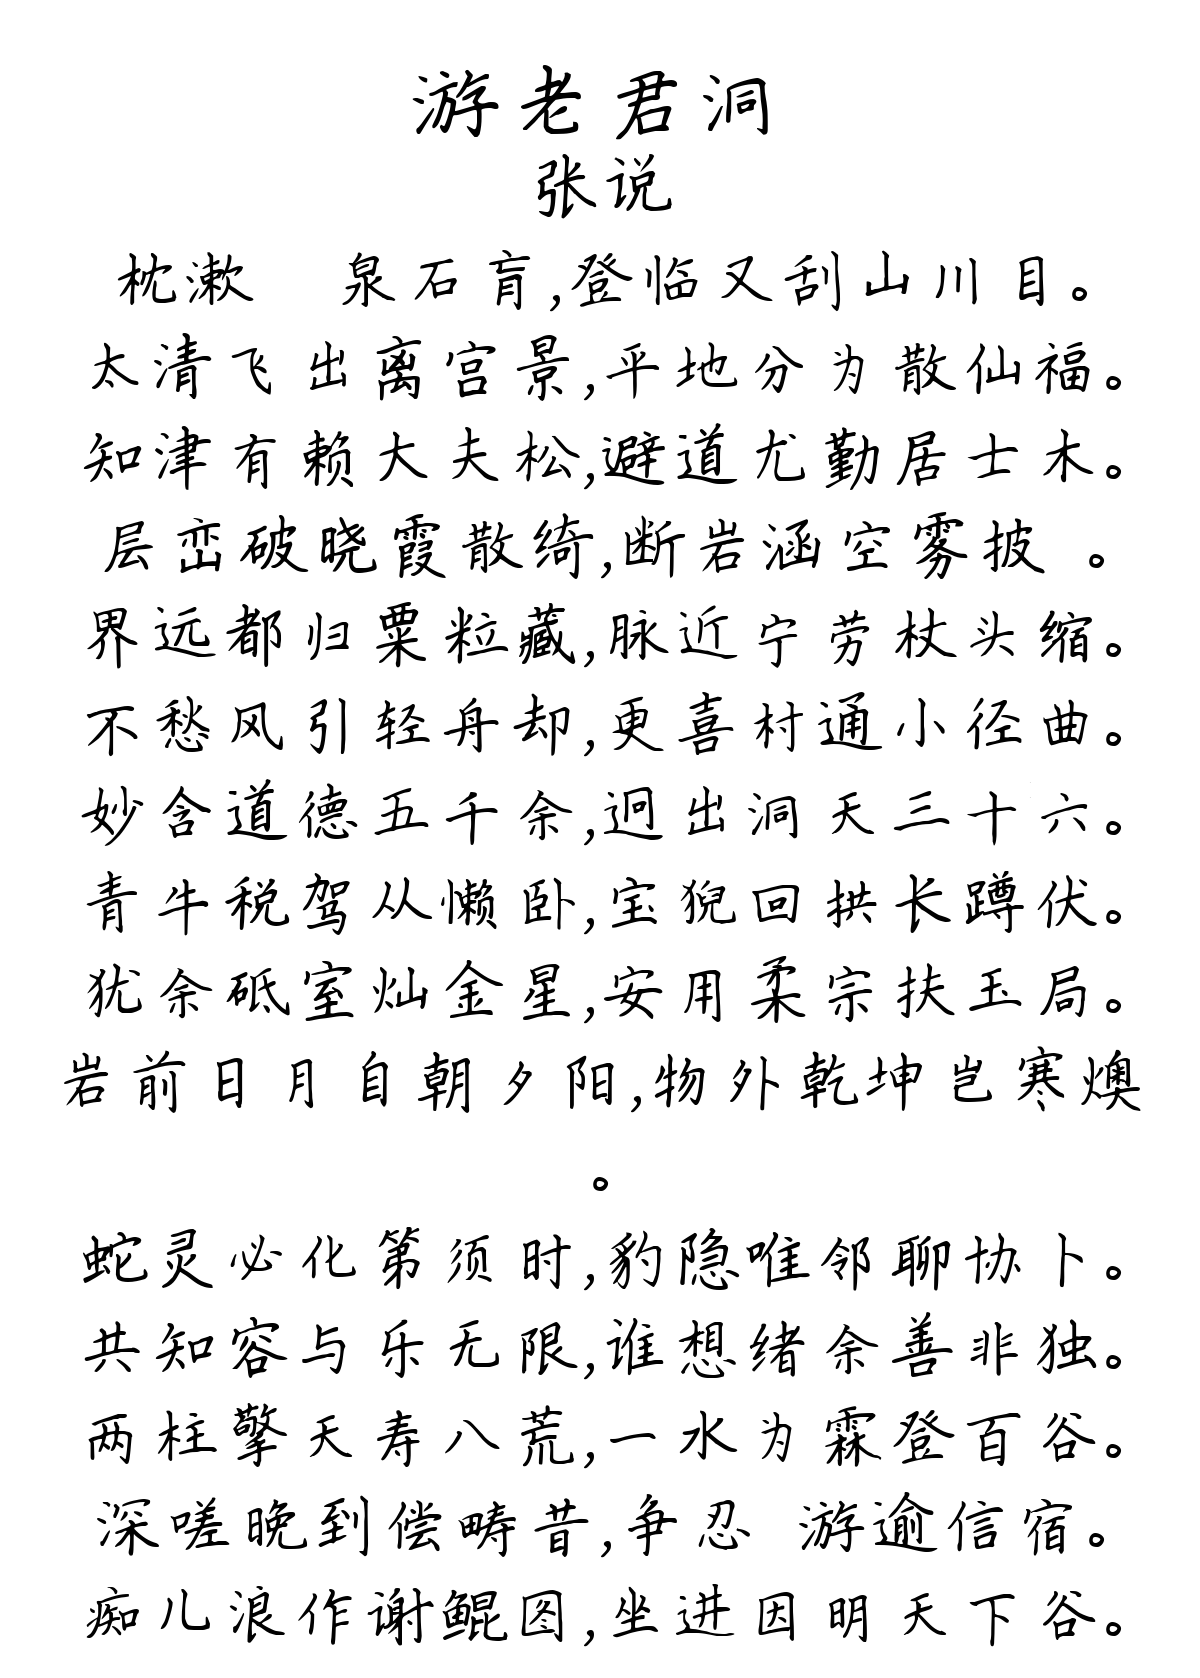 游老君洞
张说
枕漱 泉石肓,登临又刮山川目。
太清飞出离宫景,平地分为散仙福。
知津有赖大夫松,避道尤勤居士木。
层峦破晓霞散绮,断岩涵空雾披 。
界远都归粟粒藏,脉近宁劳杖头缩。
不愁风引轻舟却,更喜村通小径曲。
妙含道德五千余,迥出洞天三十六。
青牛税驾从懒卧,宝猊回拱长蹲伏。
犹余砥室灿金星,安用柔宗扶玉局。
岩前日月自朝夕阳,物外乾坤岂寒燠
。
蛇灵必化第须时,豹隐唯邻聊协卜。
共知容与乐无限,谁想绪余善非独。
两柱擎天寿八荒,一水为霖登百谷。
深嗟晚到偿畴昔,争忍 游逾信宿。
痴儿浪作谢鲲图,坐进因明天下谷。